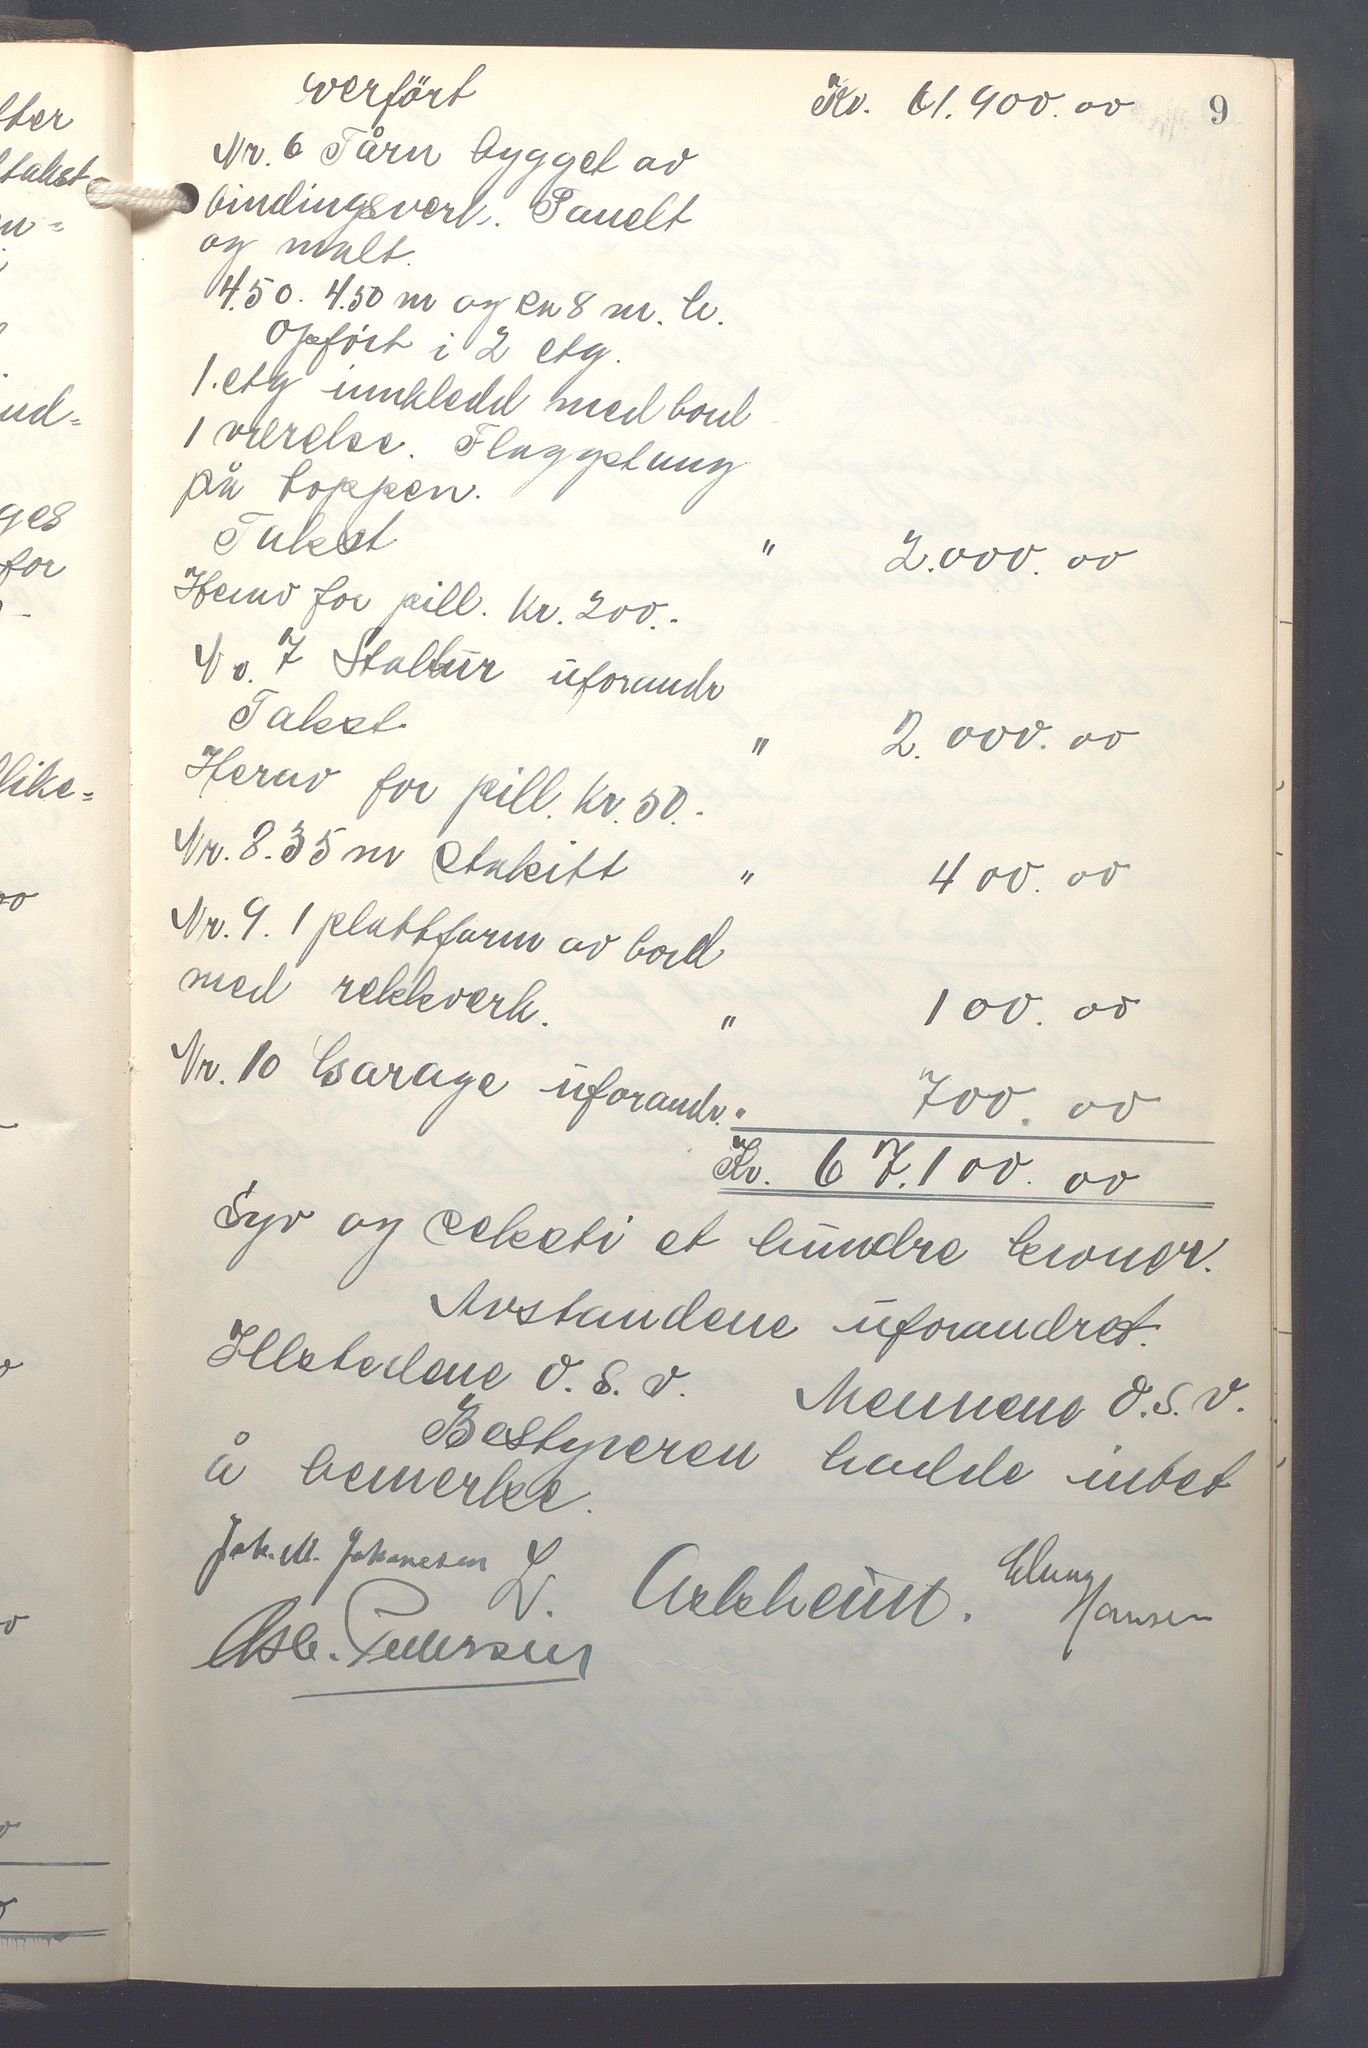 overfört Kr. 61.900.00 9
Nr. 6 Tårn bygget av
bindingsverk. Panelt
og malt.
4.50. 4.50 m og ca 8 m. h.
Opfört i 2 etg.
1. etg innkledd med bord
1 værelse. Flaggstang
på toppen.
Takst " 2.000.00
Herav for pill. Kr. 200.-
Nr. 7 Stabbur uforandr
Takst " 2.000.00
Herav for pill. Kr. 50.-
Nr. 8. 35 m Stakitt " 400.00
Nr. 9. 1 plattform av bord
med rekkverk. " 100.00
Nr. 10 Garage uforandr. " 700.00
Kr. 67.100.00
Syv og seksti et hundre kroner.
Avstandene uforandret.
Ildstedene O.S.V. Mennene O.S.V.
Bestyreren hadde intet
å bemerke.
Joh. M. Johanesen L. Askheim. Elung Hansen
Asb. Pedersen
fter
takst
nd=
ges
for
like=